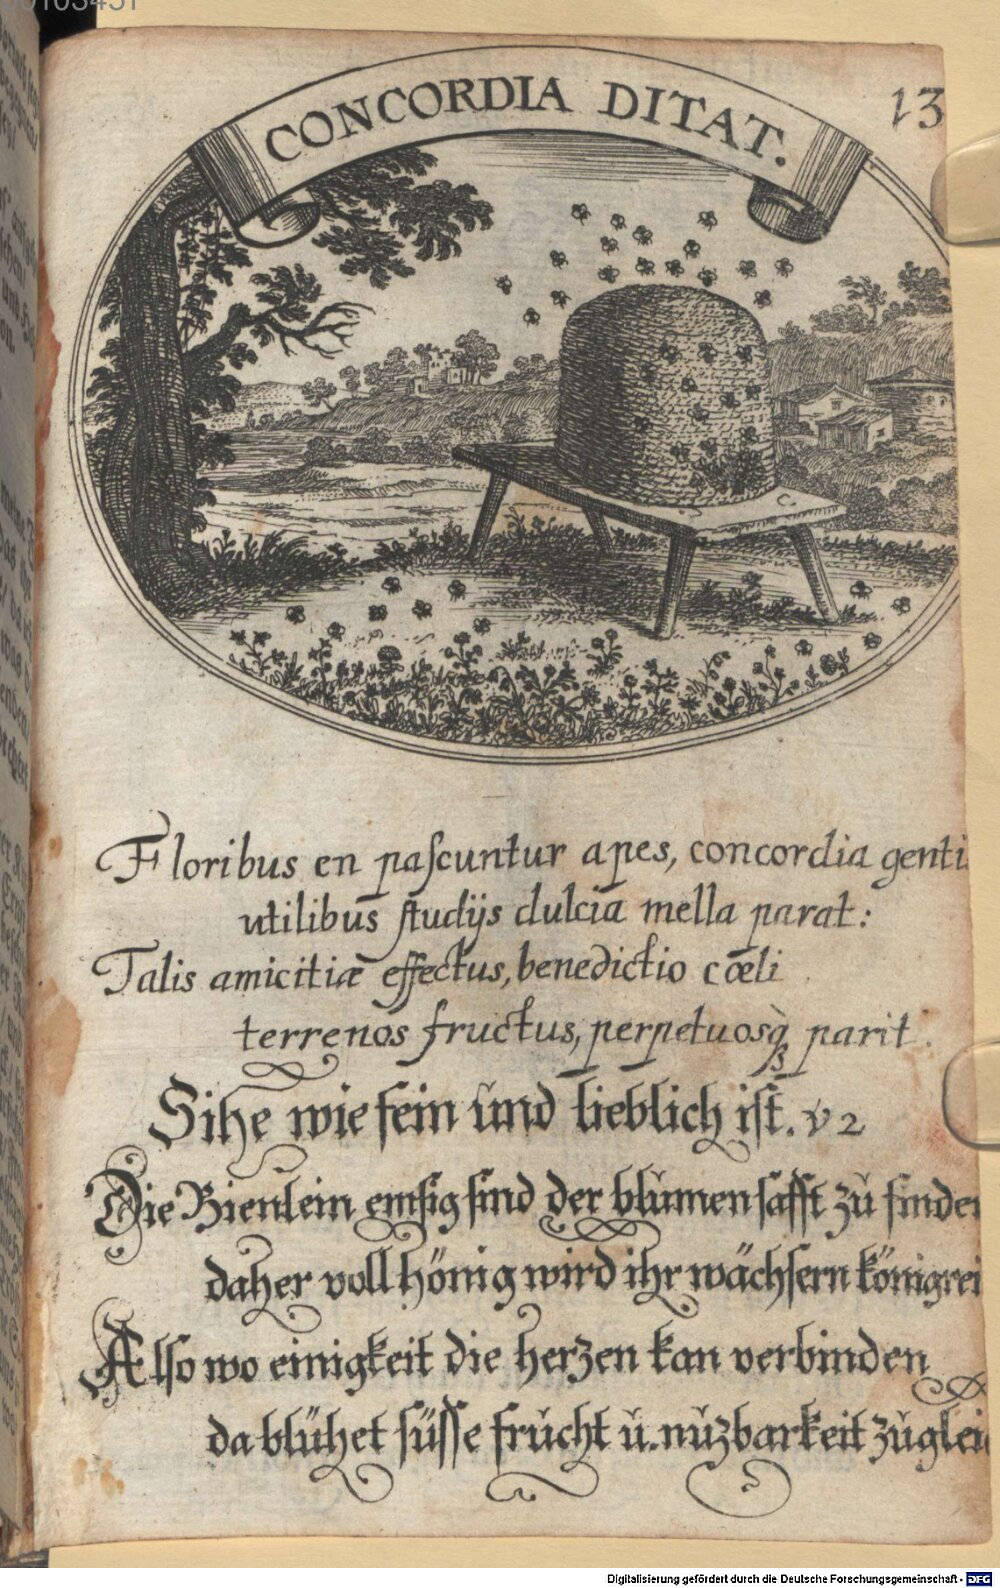 00103431
CONCORDIA DITAT.
13
Floribus en paſcuntur apes, concordia genti
utilibus ſtudijs dulcia mella parat:
Talis amicitiæ effectus, benedictio cœli
terrenos fructus, perpetuosq̃ parit.
Sihe wie fein ŭnd lieblich iſt. v 2
Die Bienlein emſig ſind der blŭmen ſafft zŭ finden
daher voll hönig wird ihr wächſern königrei
Alſo wo einigkeit die herzen kan verbinden
da blühet ſüſſe frŭcht ŭ. nŭzbarkeit zŭglei
Digitalisierung gefördert durch die Deutsche Forschungsgemeinschaft - DFG